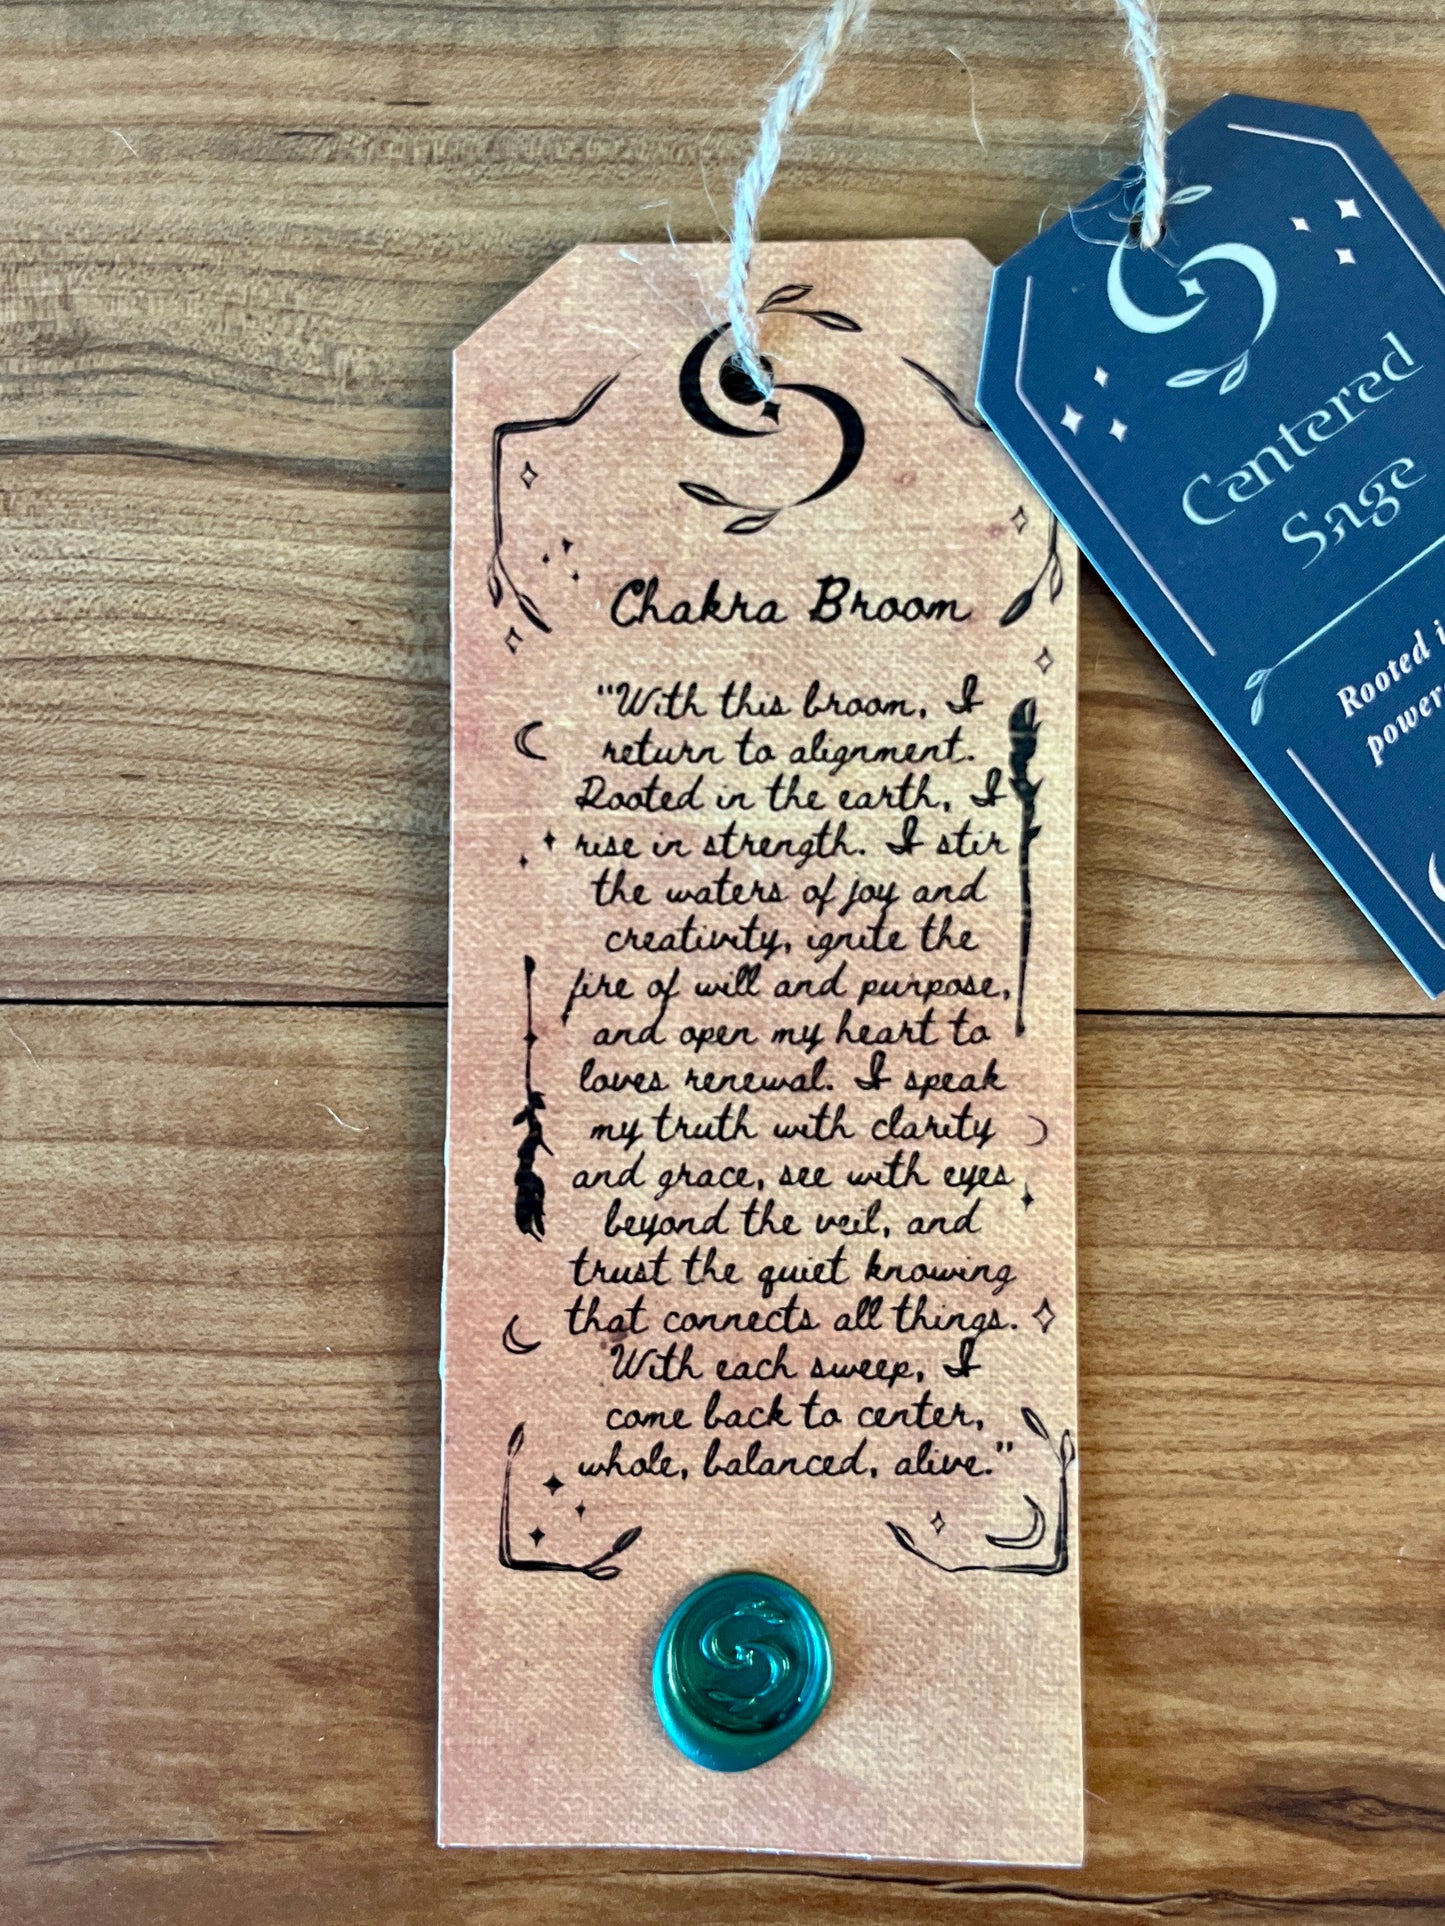 Chakra Broom
"With this broom, I
return to alignment.
Rooted in the earth, I
rise in strength. I stir
the waters of joy and
creativity, ignite the
fire of will and purpose,
and open my heart to
loves renewal. I speak
my truth with clarity
and grace, see with eyes
beyond the veil, and
trust the quiet knowing
that connects all things.
With each sweep, I
come back to center,
whole, balanced, alive."
Centered
Sage
Rooted
power